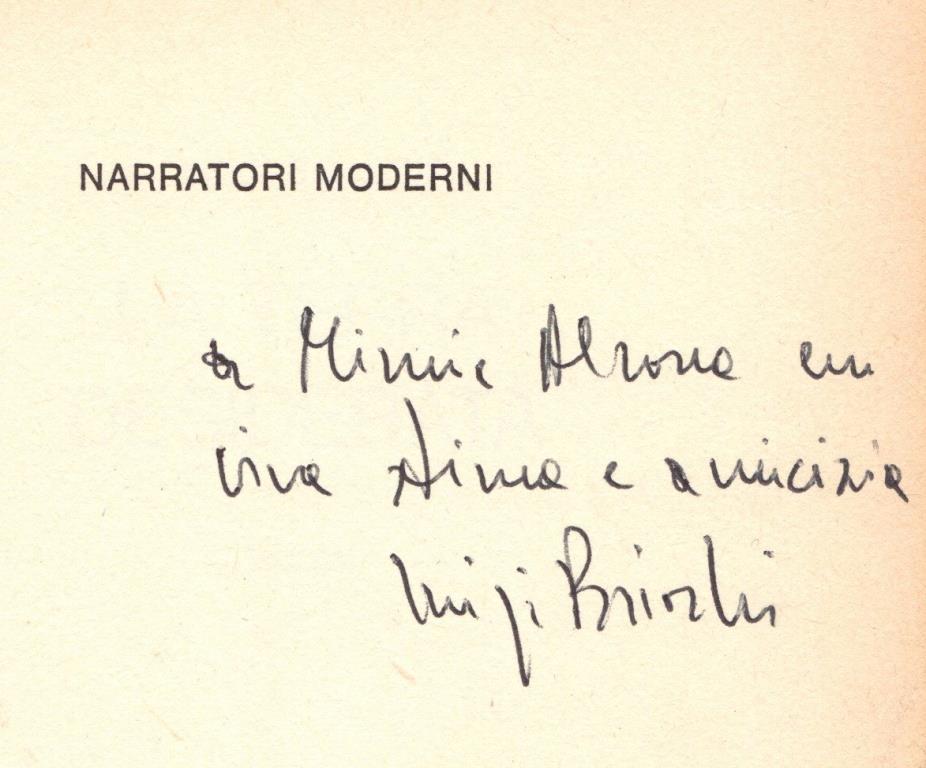 NARRATORI MODERNI
a Minnie Alzona con
viva stima e amicizia
Luigi Brioschi